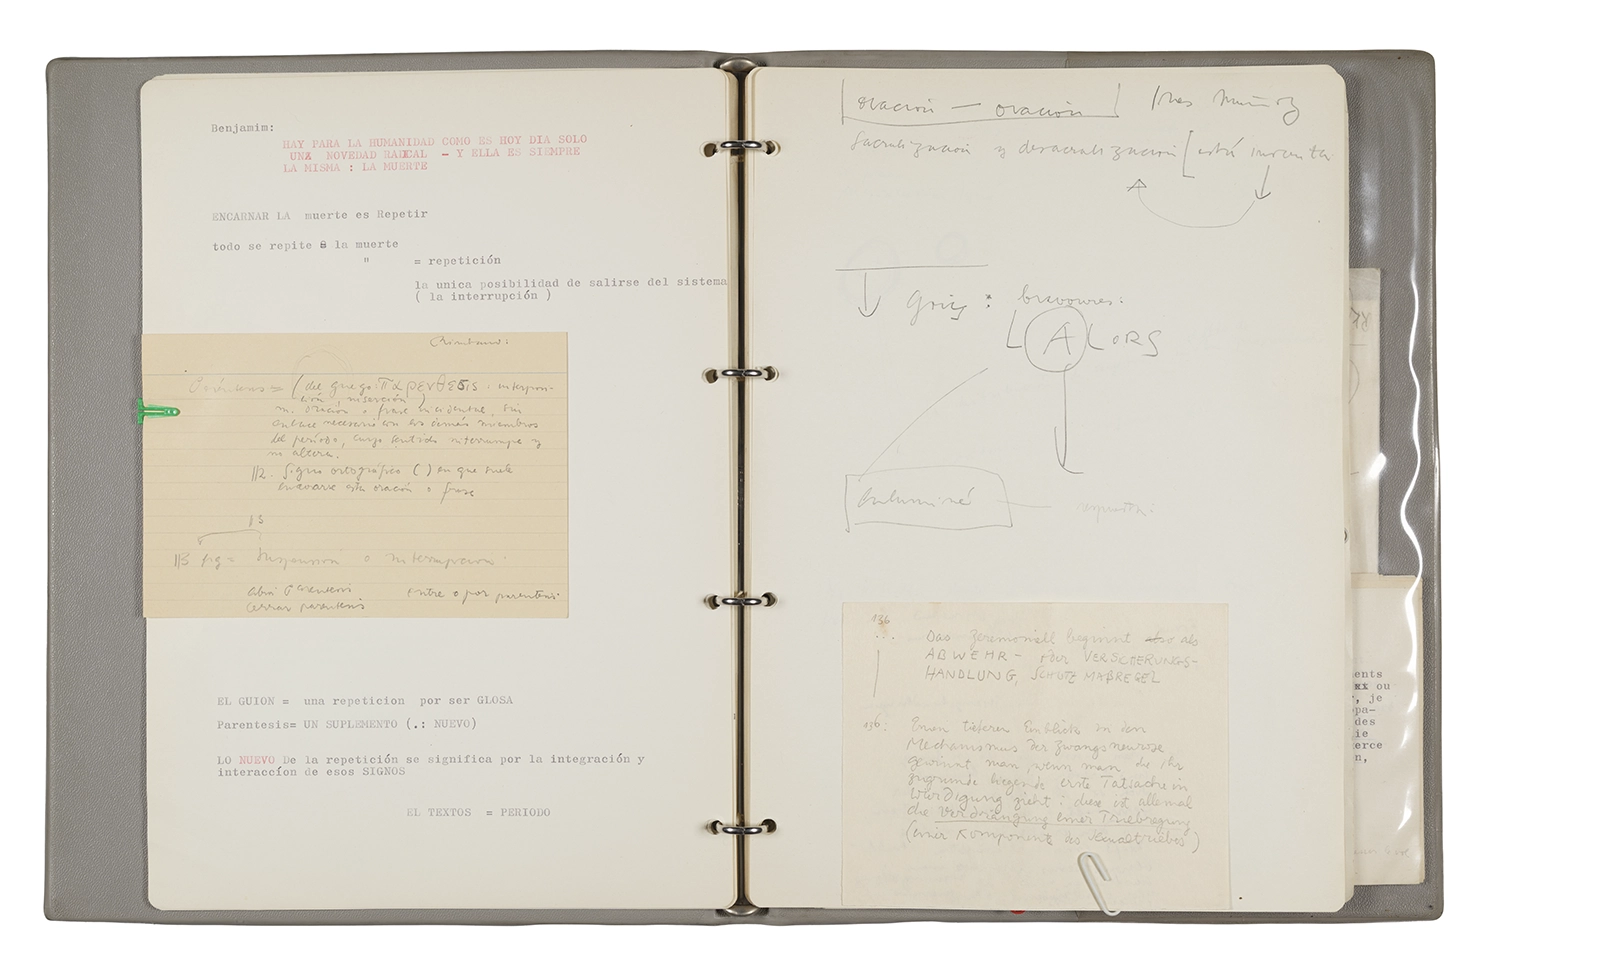 Benjamim:
HAY PARA LA HUMANIDAD COMO ES HOY DIA SOLO
UNA NOVEDAD RADICAL - Y ELLA ES SIEMPRE
LA MISMA : LA MUERTE
ENCARNAR LA muerte es Repetir
todo se repite la muerte
" = repetición
la unica posibilidad de salirse del sistema
( la interrupción )
Paréntesis = (del griego παρενθεσις: interposi-
ción, inserción)
m. oración o frase incidental, sin
enlace necesario con los demás miembros
del período, cuyo sentido interrumpe y
no altera.
||2. Signo ortográfico ( ) en que suele
encerrarse esta oración o frase
||3 fig = Suspensión o interrupción.
abrir Parentesis entre o por parentesis
cerrar parentesis
EL GUION = una repeticion por ser GLOSA
Parentesis= UN SUPLEMENTO (.: NUEVO)
LO NUEVO De la repetición se significa por la integración y
interaccíon de esos SIGNOS
EL TEXTOS = PERIODO
oración — oración
Sacralización y desacralización [está
:
LALORS
136
...
Das Zeremoniell beginnt als
ABWEHR- oder VERSICHERUNGS-
HANDLUNG, SCHUTZMAßREGEL
136: Einen tieferen Einblick in den
Mechanismus der Zwangsneurose
gewinnt man, wenn man die ihr
zugrunde liegende erste Tatsache in
Würdigung zieht: diese ist allemal
die Verdrängung einer Triebregung
(einer Komponente des Sexualtriebes)
ments
ou
, je
opa-
des
ie
merce
n,